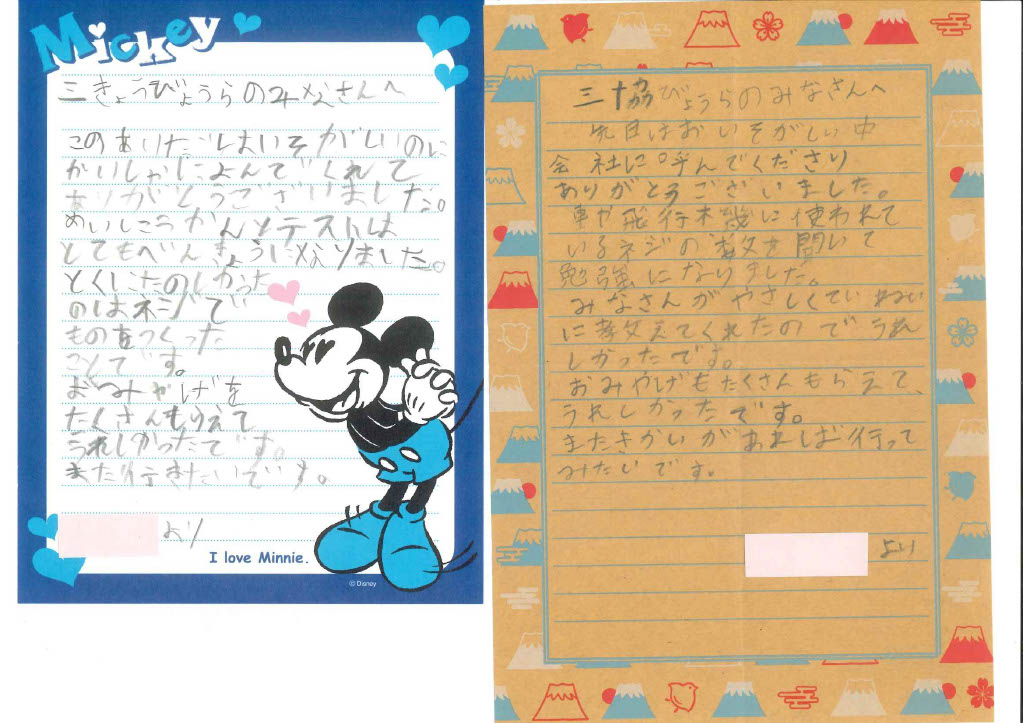 Mickey
三きょうびょうらのみなさんへ
このあいだはいそがしいのに
かいしゃによんでくれて
ありがとうございました。
めいしこうかんとテストは
とてもべんきょうになりました。
とくにたのしかった
のはネジで
ものをつくった
ことです。
おみやげを
たくさんもらえて
うれしかったです。
また行きたいです。
より
I love Minnie.
© Disney
三協びょうらのみなさんへ
先日はおいそがしい中
会社に呼んでくださり
ありがとうございました。
車や飛行機に使われて
いるネジの数を聞いて
勉強になりました。
みなさんがやさしくていねい
に教えてくれたのでうれ
しかったです。
おみやげもたくさんもらえて、
うれしかったです。
またきかいがあれば行って
みたいです。
より